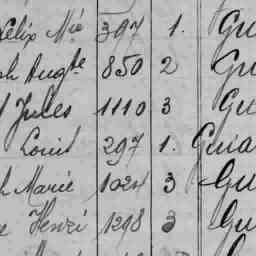 Félix Mie 397 1. Gu
ph Augte 850 2 Gu
Jules 1110 3 Gu
Louis 297 1. Guia
h Marie 1024 3 Gu
e Henri 1298 3 Gu